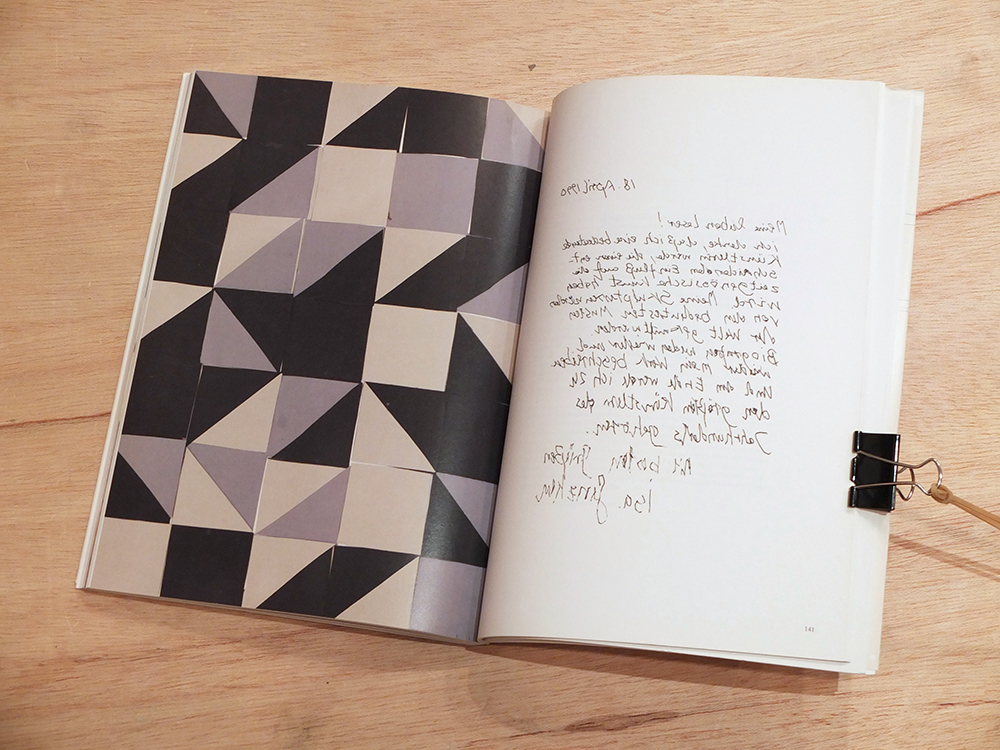 18. April 1990
Meine lieben Leser!
ich denke, daß ich eine bedeutende
Künstlerin werde, die einen ent-
scheidenden Einfluß auf die
zeitgenössische Kunst haben
wird. Meine Skulpturen werden
von den
der Welt gesammelt werden.
werden und
mein Werk beschreiben
Und am Ende werde ich zu
den größten Künstlern des
Jahrhunderts gehören.
Mit besten Grüßen
Isa Genzken
141